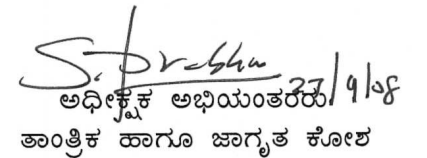 S. Prabhu 27/9/08
ಅಧೀಕ್ಷಕ ಅಭಿಯಂತರರು
ತಾಂತ್ರಿಕ ಹಾಗೂ ಜಾಗೃತ ಕೋಶ